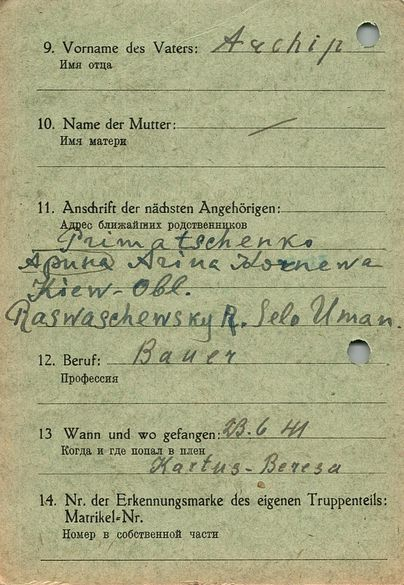 9. Vorname des Vaters: Archip
Имя отца
10. Name der Mutter: —
Имя матери
11. Anschrift der nächsten Angehörigen:
Адрес ближайших родственников
Primatschenko
Арина Arina Kornewa
Kiew-Obl.
Raswaschewsky R. Selo Uman.
12. Beruf: Bauer
Профессия
13 Wann und wo gefangen: 23.6 41
Когда и где попал в плен
Kartus-Beresa
14. Nr. der Erkennungsmarke des eigenen Truppenteils:
Matrikel-Nr.
Номер в собственной части